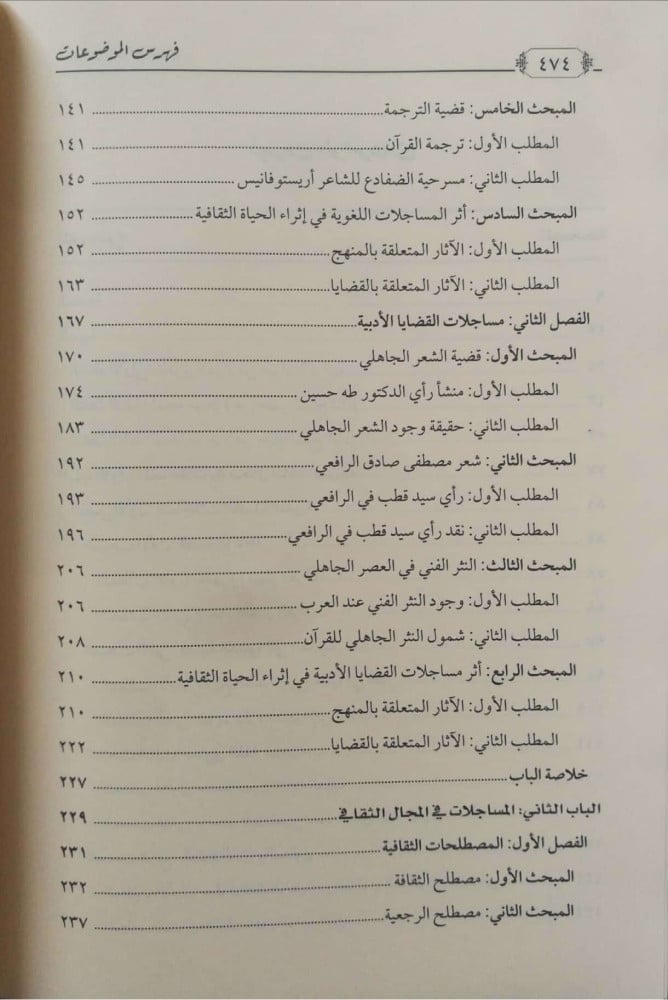 فهرس الموضوعات
٤٧٤
المبحث الخامس: قضية الترجمة ١٤١
المطلب الأول: ترجمة القرآن ١٤١
المطلب الثاني: مسرحية الضفادع للشاعر أريستوفانيس ١٤٥
المبحث السادس: أثر المساجلات اللغوية في إثراء الحياة الثقافية ١٥٢
المطلب الأول: الآثار المتعلقة بالمنهج ١٥٢
المطلب الثاني: الآثار المتعلقة بالقضايا ١٦٣
الفصل الثاني: مساجلات القضايا الأدبية ١٦٧
المبحث الأول: قضية الشعر الجاهلي ١٧٠
المطلب الأول: منشأ رأي الدكتور طه حسين ١٧٤
المطلب الثاني: حقيقة وجود الشعر الجاهلي ١٨٣
المبحث الثاني: شعر مصطفى صادق الرافعي ١٩٢
المطلب الأول: رأي سيد قطب في الرافعي ١٩٣
المطلب الثاني: نقد رأي سيد قطب في الرافعي ١٩٦
المبحث الثالث: النثر الفني في العصر الجاهلي ٢٠٦
المطلب الأول: وجود النثر الفني عند العرب ٢٠٦
المطلب الثاني: شمول النثر الجاهلي للقرآن ٢٠٨
المبحث الرابع: أثر مساجلات القضايا الأدبية في إثراء الحياة الثقافية ٢١٠
المطلب الأول: الآثار المتعلقة بالمنهج ٢١٠
المطلب الثاني: الآثار المتعلقة بالقضايا ٢٢٢
خلاصة الباب ٢٢٧
الباب الثاني: المساجلات في المجال الثقافي ٢٢٩
الفصل الأول: المصطلحات الثقافية ٢٣١
المبحث الأول: مصطلح الثقافة ٢٣٢
المبحث الثاني: مصطلح الرجعية ٢٣٧